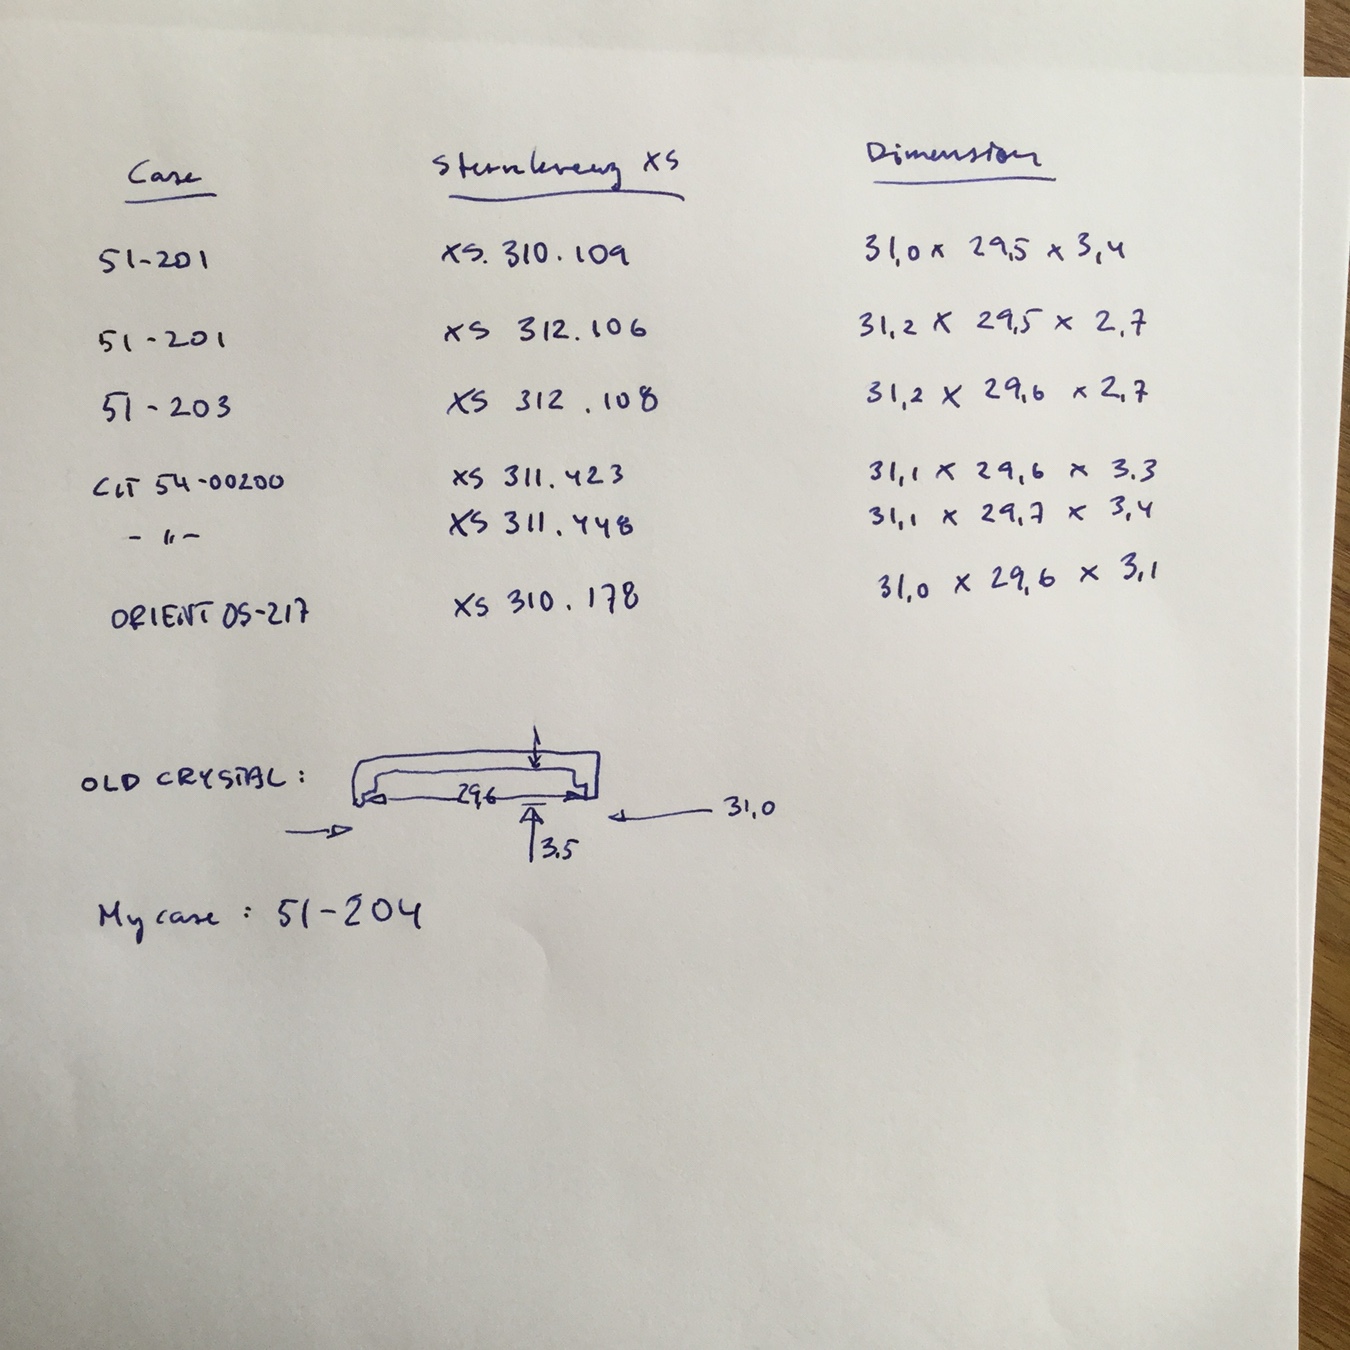 Case Sternkreuz XS Dimension
51-201 XS. 310.109 31,0 x 29,5 x 3,4
51-201 XS 312.106 31,2 x 29,5 x 2,7
51-203 XS 312.108 31,2 x 29,6 x 2,7
CIT 54-00200 XS 311.423 31,1 x 29,6 x 3.3
- " - XS 311.448 31,1 x 29,7 x 3,4
ORIENT OS-217 XS 310.178 31,0 x 29,6 x 3,1
OLD CRYSTAL:
29,6
31,0
3.5
My case : 51-204